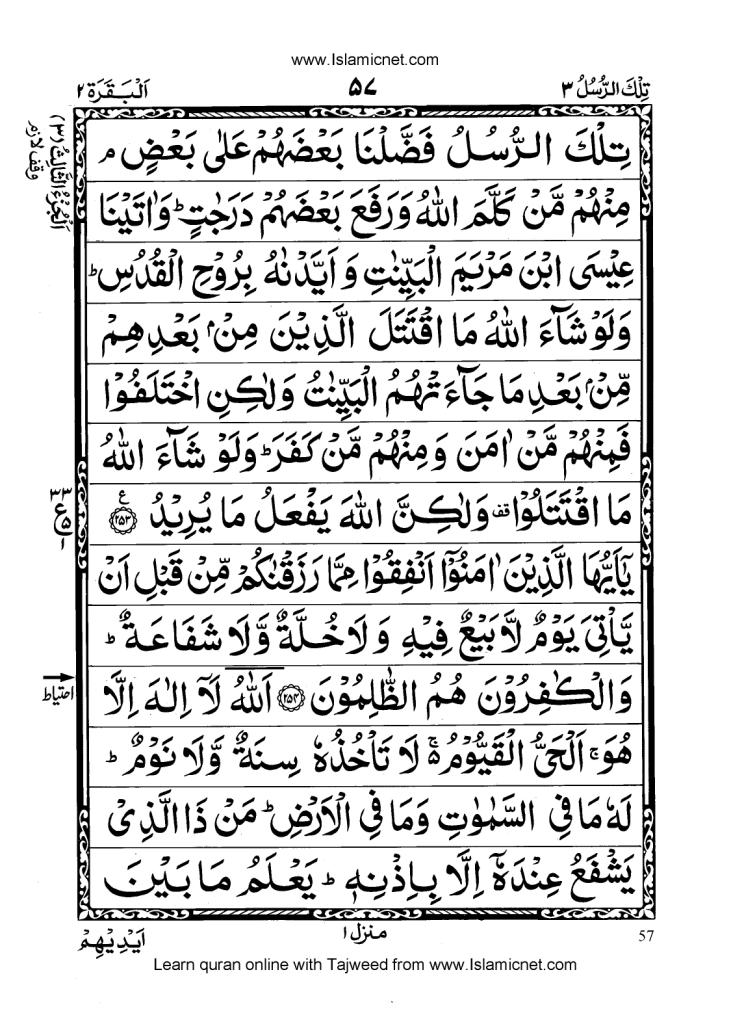 www.Islamicnet.com
تِلْكَ الرُّسُلُ ٣
٥٧
اَلْبَقَرَة ٢
اَلْجُزْءُ الثَّالِثُ (٣)
وقف لازم
تِلْكَ الرُّسُلُ فَضَّلْنَا بَعْضَهُمْ عَلٰى بَعْضٍ ۘ
مِنْهُمْ مَّنْ كَلَّمَ اللّٰهُ وَرَفَعَ بَعْضَهُمْ دَرَجٰتٍ ؕ وَاٰتَيْنَا
عِيْسَى ابْنَ مَرْيَمَ الْبَيِّنٰتِ وَاَيَّدْنٰهُ بِرُوْحِ الْقُدُسِ ؕ
وَلَوْ شَآءَ اللّٰهُ مَا اقْتَتَلَ الَّذِيْنَ مِنْۢ بَعْدِهِمْ
مِّنْۢ بَعْدِ مَا جَآءَتْهُمُ الْبَيِّنٰتُ وَلٰكِنِ اخْتَلَفُوْا
فَمِنْهُمْ مَّنْ اٰمَنَ وَمِنْهُمْ مَّنْ كَفَرَ ؕ وَلَوْ شَآءَ اللّٰهُ
مَا اقْتَتَلُوْا قف وَلٰكِنَّ اللّٰهَ يَفْعَلُ مَا يُرِيْدُ ع ﴿٢٥٣﴾
٣٣
ع
٥
١
يٰۤاَيُّهَا الَّذِيْنَ اٰمَنُوْۤا اَنْفِقُوْا مِمَّا رَزَقْنٰكُمْ مِّنْ قَبْلِ اَنْ
يَّاْتِيَ يَوْمٌ لَّا بَيْعٌ فِيْهِ وَلَا خُلَّةٌ وَّلَا شَفَاعَةٌ ؕ
وَالْكٰفِرُوْنَ هُمُ الظّٰلِمُوْنَ ﴿٢٥٤﴾ اَللّٰهُ لَاۤ اِلٰهَ اِلَّا
احتياط
هُوَ ۚ اَلْحَيُّ الْقَيُّوْمُ ۚ لَا تَاْخُذُهٗ سِنَةٌ وَّلَا نَوْمٌ ؕ
لَهٗ مَا فِي السَّمٰوٰتِ وَمَا فِي الْاَرْضِ ؕ مَنْ ذَا الَّذِيْ
يَشْفَعُ عِنْدَهٗۤ اِلَّا بِاِذْنِهٖ ؕ يَعْلَمُ مَا بَيْنَ
منزل ١
اَيْدِيْهِمْ
57
Learn quran online with Tajweed from www.Islamicnet.com